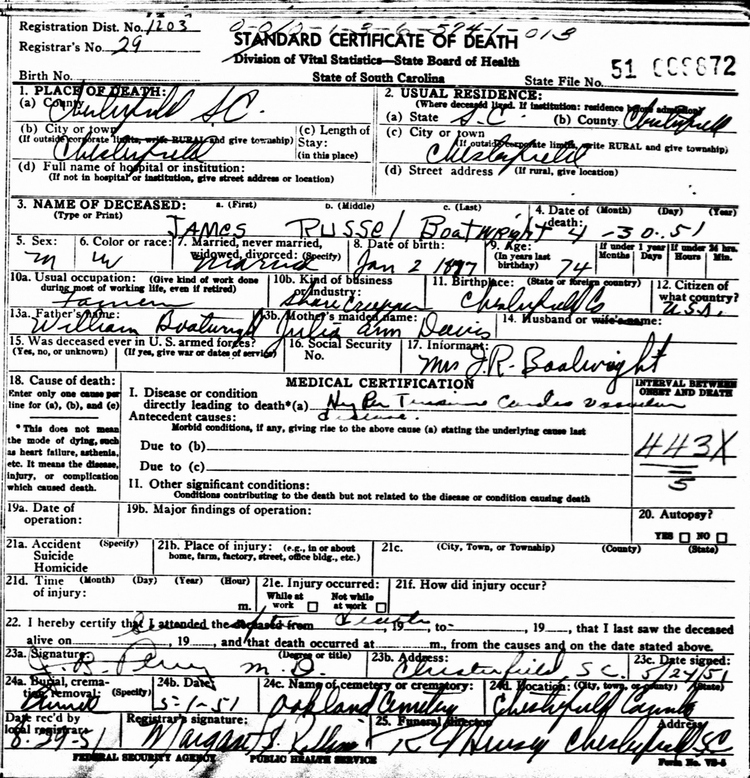 Registration Dist. No. 1203
Registrar's No. 29
STANDARD CERTIFICATE OF DEATH
Division of Vital Statistics—State Board of Health
State of South Carolina
Birth No.
State File No. 51 009872
1. PLACE OF DEATH:
(a) County Chesterfield S.C.
(b) City or town
(If outside corporate limits, write RURAL and give township)
Chesterfield
(c) Length of Stay:
(in this place)
(d) Full name of hospital or institution:
(If not in hospital or institution, give street address or location)
2. USUAL RESIDENCE:
(Where deceased lived. If institution: residence before admission)
(a) State S.C. (b) County Chesterfield
(c) City or town
(If outside corporate limits, write RURAL and give township)
Chesterfield
(d) Street address (If rural, give location)
3. NAME OF DECEASED: a. (First) b. (Middle) c. (Last)
(Type or Print)
JAMES RUSSEL Boatwright
4. Date of death: (Month) (Day) (Year)
4-30-51
5. Sex: M
6. Color or race: W
7. Married, never married, widowed, divorced: (Specify)
Married
8. Date of birth:
Jan 2 1877
9. Age:
(In years last birthday) 74
If under 1 year Months Days
If under 24 hrs. Hours Min.
10a. Usual occupation: (Give kind of work done during most of working life, even if retired)
Farmer
10b. Kind of business or Industry:
Share Cropper
11. Birthplace: (State or foreign country)
Chesterfield Co
12. Citizen of what country?
U.S.A.
13a. Father's name:
William Boatwright
13b. Mother's maiden name:
Julia Ann Davis
14. Husband or wife's name:
15. Was deceased ever in U. S. armed forces?
(Yes, no, or unknown) (If yes, give war or dates of service)
16. Social Security No.
17. Informant:
Mrs J.R. Boatwright
18. Cause of death:
Enter only one cause per line for (a), (b), and (c)
* This does not mean the mode of dying, such as heart failure, asthenia, etc. It means the disease, injury, or complication which caused death.
MEDICAL CERTIFICATION
INTERVAL BETWEEN ONSET AND DEATH
I. Disease or condition directly leading to death*(a) Hyper Tensive Cardio Vascular disease.
Antecedent causes:
Morbid conditions, if any, giving rise to the above cause (a) stating the underlying cause last
Due to (b)
Due to (c)
443X
5
II. Other significant conditions:
Conditions contributing to the death but not related to the disease or condition causing death
19a. Date of operation:
19b. Major findings of operation:
20. Autopsy?
YES NO
21a. Accident (Specify)
Suicide
Homicide
21b. Place of injury: (e.g., in or about home, farm, factory, street, office bldg., etc.)
21c. (City, Town, or Township) (County) (State)
21d. Time of injury: (Month) (Day) (Year) (Hour)
m.
21e. Injury occurred:
While at work Not while at work
21f. How did injury occur?
22. I hereby certify that I attended the deceased from , 19 , to , 19 , that I last saw the deceased
alive on , 19 , and that death occurred at m., from the causes and on the date stated above.
23a. Signature: (Degree or title)
Perry M.D.
23b. Address:
Chesterfield, S.C.
23c. Date signed:
5/24/51
24a. Burial, cremation, removal: (Specify)
24b. Date:
5-1-51
24c. Name of cemetery or crematory:
Oakland Cemetery
24d. Location: (City, town, or county) (State)
Chesterfield County
Date rec'd by local registrar:
8-29-51
Registrar's signature:
25. Funeral director Address
Chesterfield, SC
FEDERAL SECURITY AGENCY PUBLIC HEALTH SERVICE Form No. VS-5